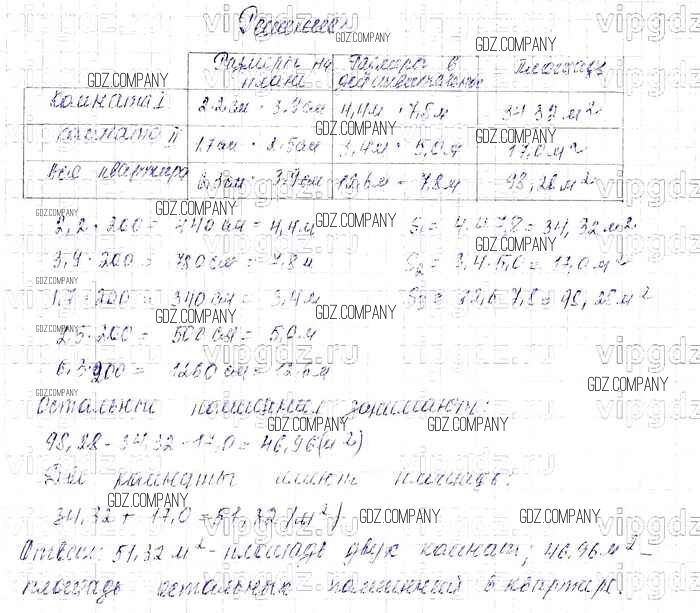 Решение
Размеры на плане | Размеры в действительности | Площадь
Комната I | 2.2 см · 3.9 см | 4,4 м · 7,8 м | 34 32 м²
комната II | 1.7 см · 2.5 см | 3,4 м · 5,0 м | 17,0 м²
Вся квартира | 6,3 см · 3,9 см | 12,6 м · 7.8 м | 98,28 м²
2,2 · 200 = 440 см = 4,4 м
S₁ = 4.4 · 7,8 = 34,32 м²
3,9 · 200 = 780 см = 7,8 м
S₂ = 3,4 · 5,0 = 17,0 м²
1,7 · 200 = 340 см = 3,4 м
S₃ = 12,6 · 7,8 = 98,28 м²
2,5 · 200 = 500 см = 5,0 м
6,3 · 200 = 1260 см = 12,6 м
Остальные помещения занимают:
98,28 - 34,32 - 17,0 = 46,96 (м²)
Две комнаты имеют площадь:
34,32 + 17,0 = 51,32 (м²)
Ответ: 51,32 м² - площадь двух комнат; 46.96 м² -
площадь остальных помещений в квартире.
GDZ.COMPANY
vipgdz.ru